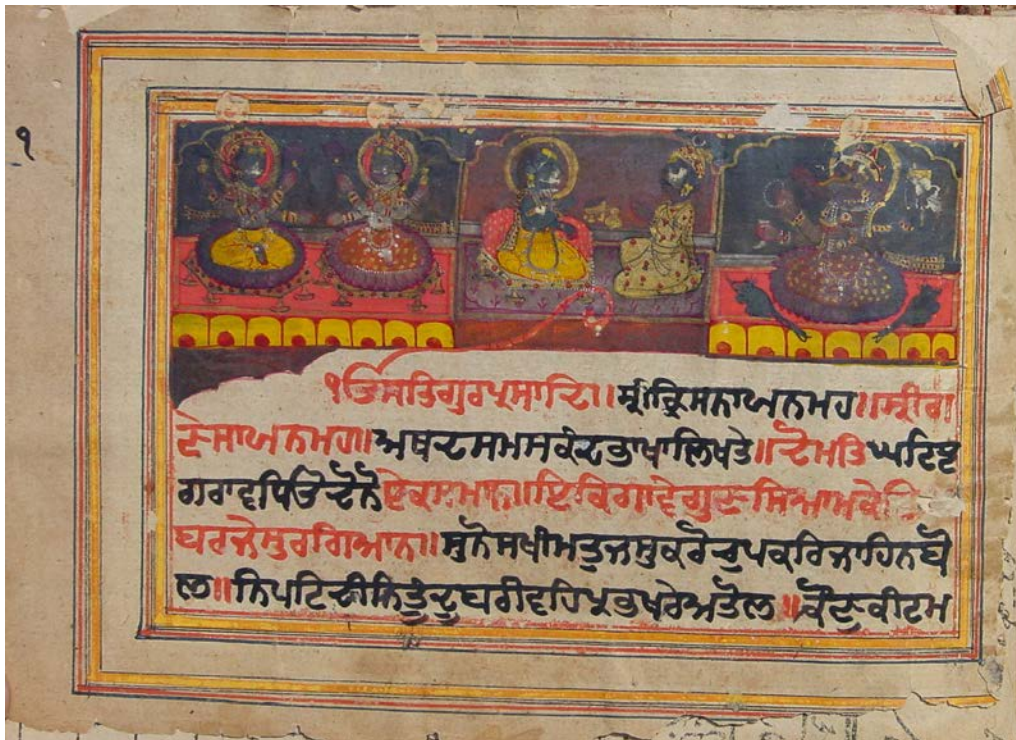 ੧
ੴ ਸਤਿਗੁਰ ਪ੍ਰਸਾਦਿ ॥ ਸ੍ਰੀ ਕ੍ਰਿਸਨਾਯ ਨਮਹ ॥ ਸ੍ਰੀ ਗ
ਣੇਸਾਯ ਨਮਹ ॥ ਅਥ ਦਸਮ ਸਕੰਦ ਭਾਖਾ ਲਿਖਤੇ ॥ ਦੈਮਤਿ ਘਟਿ
ਗਰਾਵ ਪਿਤੇ ਦੋਨੋ ਏਕ ਸਮਾਨ ॥ ਇਕਿ ਗਾਵੇ ਗੁਣ ਸਿਆਮ ਕੇ
ਘਰਜੇ ਸੁਰ ਗਿਆਨ ॥ ਸੁਨੋ ਸਖੀ ਮਤੁ ਜਸੁ ਕਰੋ ਚੁਪ ਕਰਿ ਨਾਹਿਨ ਬੋ
ਲ ॥ ਨਿਪਟਿ ਢੀਠਿ ਤੁੰਦੁ ਘਰੀ ਵਹਿ ਪ੍ਰਭ ਖਰੇ ਅਤੋਲ ॥ ਕੌਣੁ ਕੀਟ ਮ